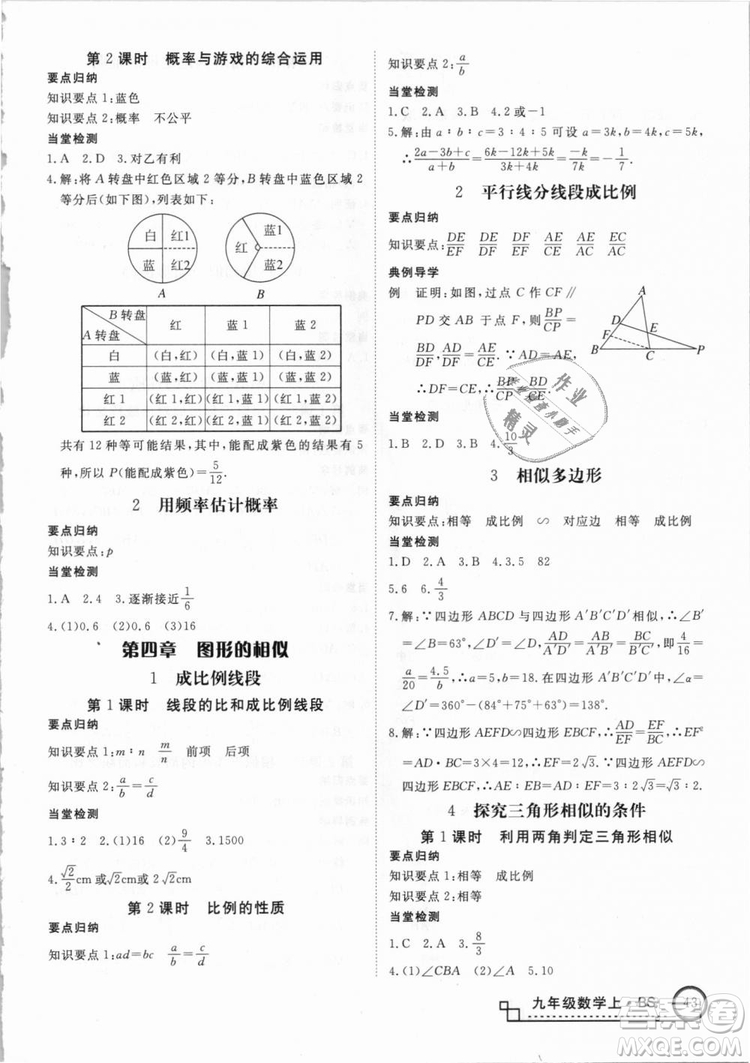 第2课时 概率与游戏的综合运用
要点归纳
知识要点1:蓝色
知识要点2:概率 不公平
当堂检测
1.A 2.D 3.对乙有利
4.解:将A转盘中红色区域2等分,B转盘中蓝色区域2
等分后(如下图),列表如下:
白 红1
蓝 红2
A
红 蓝1
蓝2
B
B转盘 A转盘 红 蓝1 蓝2
白 (白,红) (白,蓝1) (白,蓝2)
蓝 (蓝,红) (蓝,蓝1) (蓝,蓝2)
红1 (红1,红) (红1,蓝1) (红1,蓝2)
红2 (红2,红) (红2,蓝1) (红2,蓝2)
共有12种等可能结果,其中,能配成紫色的结果有5
种,所以P(能配成紫色)=5/12.
2 用频率估计概率
要点归纳
知识要点:p
当堂检测
1.A 2.4 3.逐渐接近1/6
4.(1)0.6 (2)0.6 (3)16
第四章 图形的相似
1 成比例线段
第1课时 线段的比和成比例线段
要点归纳
知识要点1:m∶n m/n 前项 后项
知识要点2:a/b=c/d
当堂检测
1.3∶2 2.(1)16 (2)9/4 3.1500
4.√2/2cm或√2cm或2√2cm
第2课时 比例的性质
知识要点1:ad=bc a/b=c/d
知识要点2:a/b
当堂检测
1.C 2.A 3.B 4.2或-1
5.解:由a∶b∶c=3∶4∶5可设a=3k,b=4k,c=5k,
∴(2a-3b+c)/(a+b)=(6k-12k+5k)/(3k+4k)=-k/7k=-1/7.
2 平行线分线段成比例
要点归纳
知识要点:DE/EF DE/DF AE/EC AE/AC EC/AC
典例导学
例 证明:如图,过点C作CF∥
PD交AB于点F,则BP/CP=
BD/DF,AD/DF=AE/CE.∵AD=AE,
∴DF=CE,∴BP/CP=BD/CE.
A
D
E
F
B
C
P
当堂检测
1.B 2.D 3.12 4.10/3
3 相似多边形
要点归纳
知识要点:相等 成比例 ∽ 对应边 相等 成比例
当堂检测
1.D 2.A 3.B 4.3.5 82
5.6 6.4/3
7.解:∵四边形ABCD与四边形A′B′C′D′相似,
∴∠B=63°,∠D=∠D′,AD/A′D′=AB/A′B′=BC/B′C′,即4/16=
a/20=4.5/b,∴a=5,b=18.在四边形A′B′C′D′中,
∠D′=360°-(84°+75°+63°)=138°.
8.解:∵四边形AEFD∽四边形EBCF,∴AD/EF=EF/BC,∴EF²
=AD·BC=3×4=12,∴EF=2√3.∵四边形AEFD∽
四边形EBCF,∴AE∶EB=AD∶EF=3∶2√3=√3∶2.
4 探究三角形相似的条件
第1课时 利用两角判定三角形相似
要点归纳
知识要点1:相等 成比例
知识要点2:相等
当堂检测
1.C 2.D 3.8/3
4.(1)∠CBA (2)∠A 5.10
九年级数学上·BS
作业
精灵
MXQE.COM